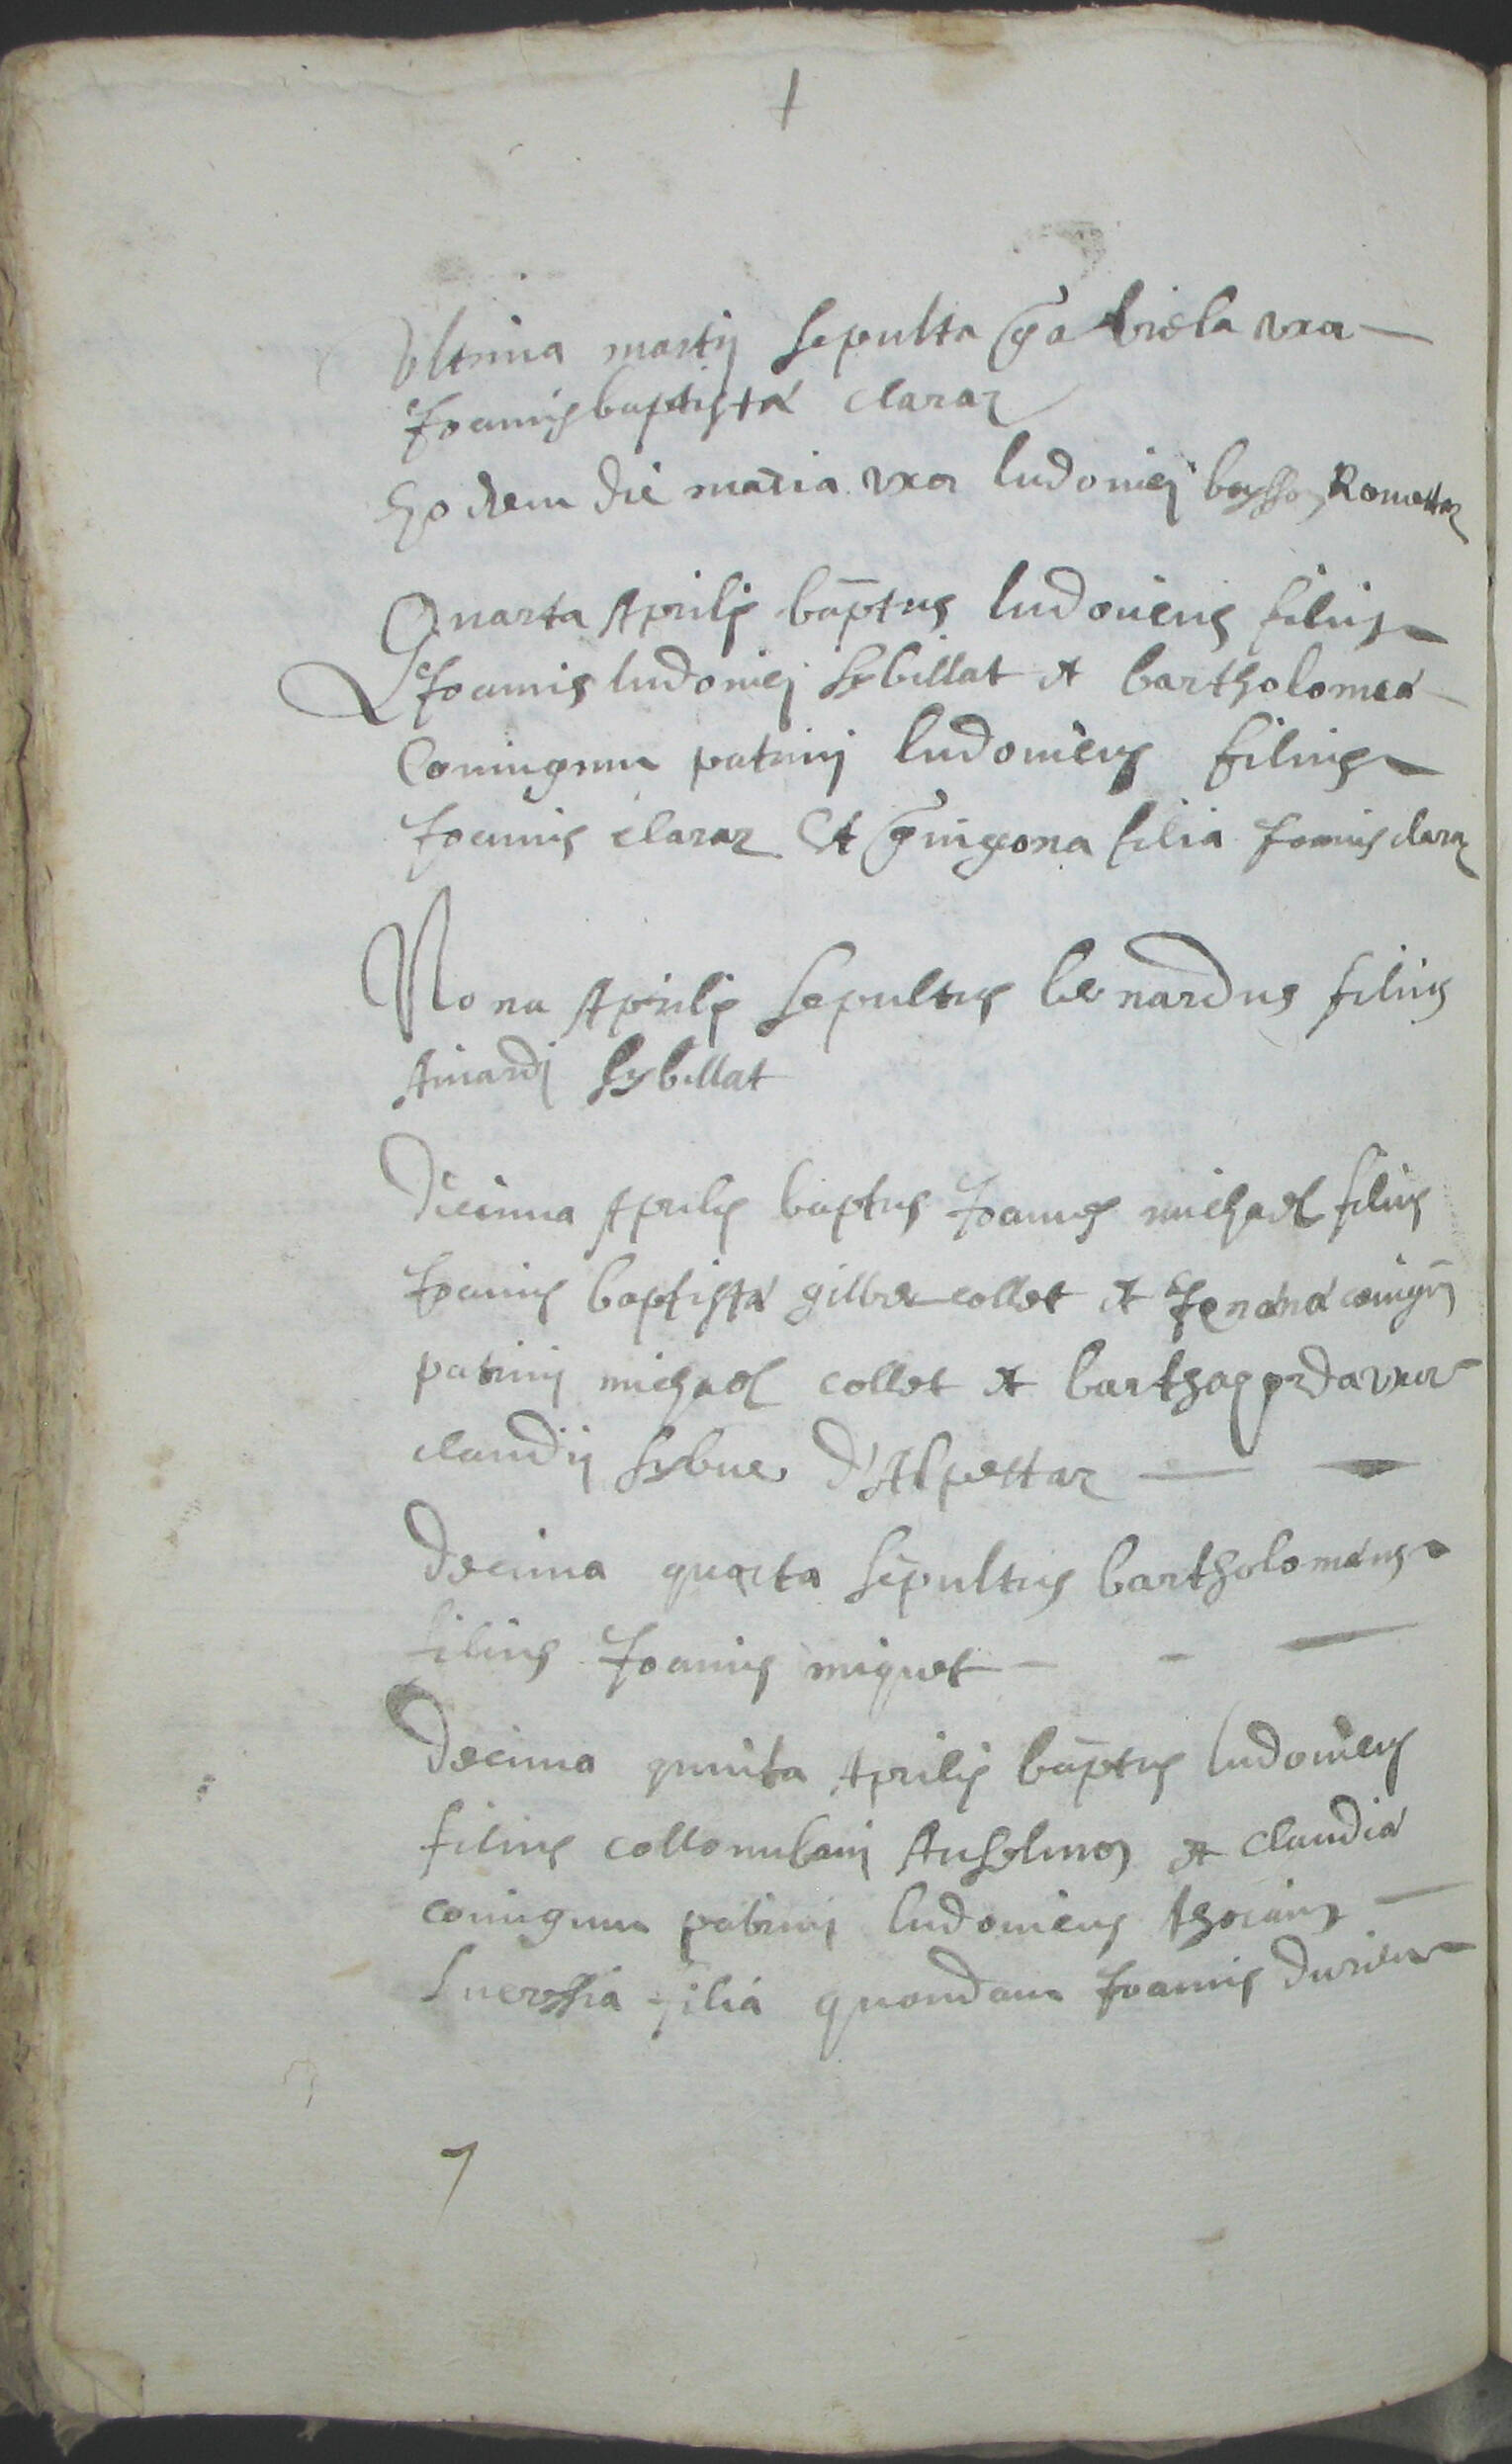 Ultima martij sepulta gabriela uxor
Joannis baptistæ claraz
Eodem die maria uxor ludovicj boysson Romettaz
Quarta Aprilis bāptus ludovicus filius
Joannis ludovicj sybillat et bartholomeæ
Coniugum patrinj ludovicus filius
Joannis claraz Et guigona filia Joannis claraz
Nona Aprilis sepultus bernardus filius
Aimardj sybillat
Decima Aprilis baptus Joannes michael filius
Joannis baptistæ collet et coniugū
patrinj michael collet et uxor
claudij sybue d'Alpettaz
Decima quarta sepultus bartholomæus
filius Joannis miquet
Decima quinta Aprilis bāptus ludovicus
filius collonubanj Anselmoz et claudiæ
coniugum patrinj ludovicus
filia quondam Joannis durieu
7